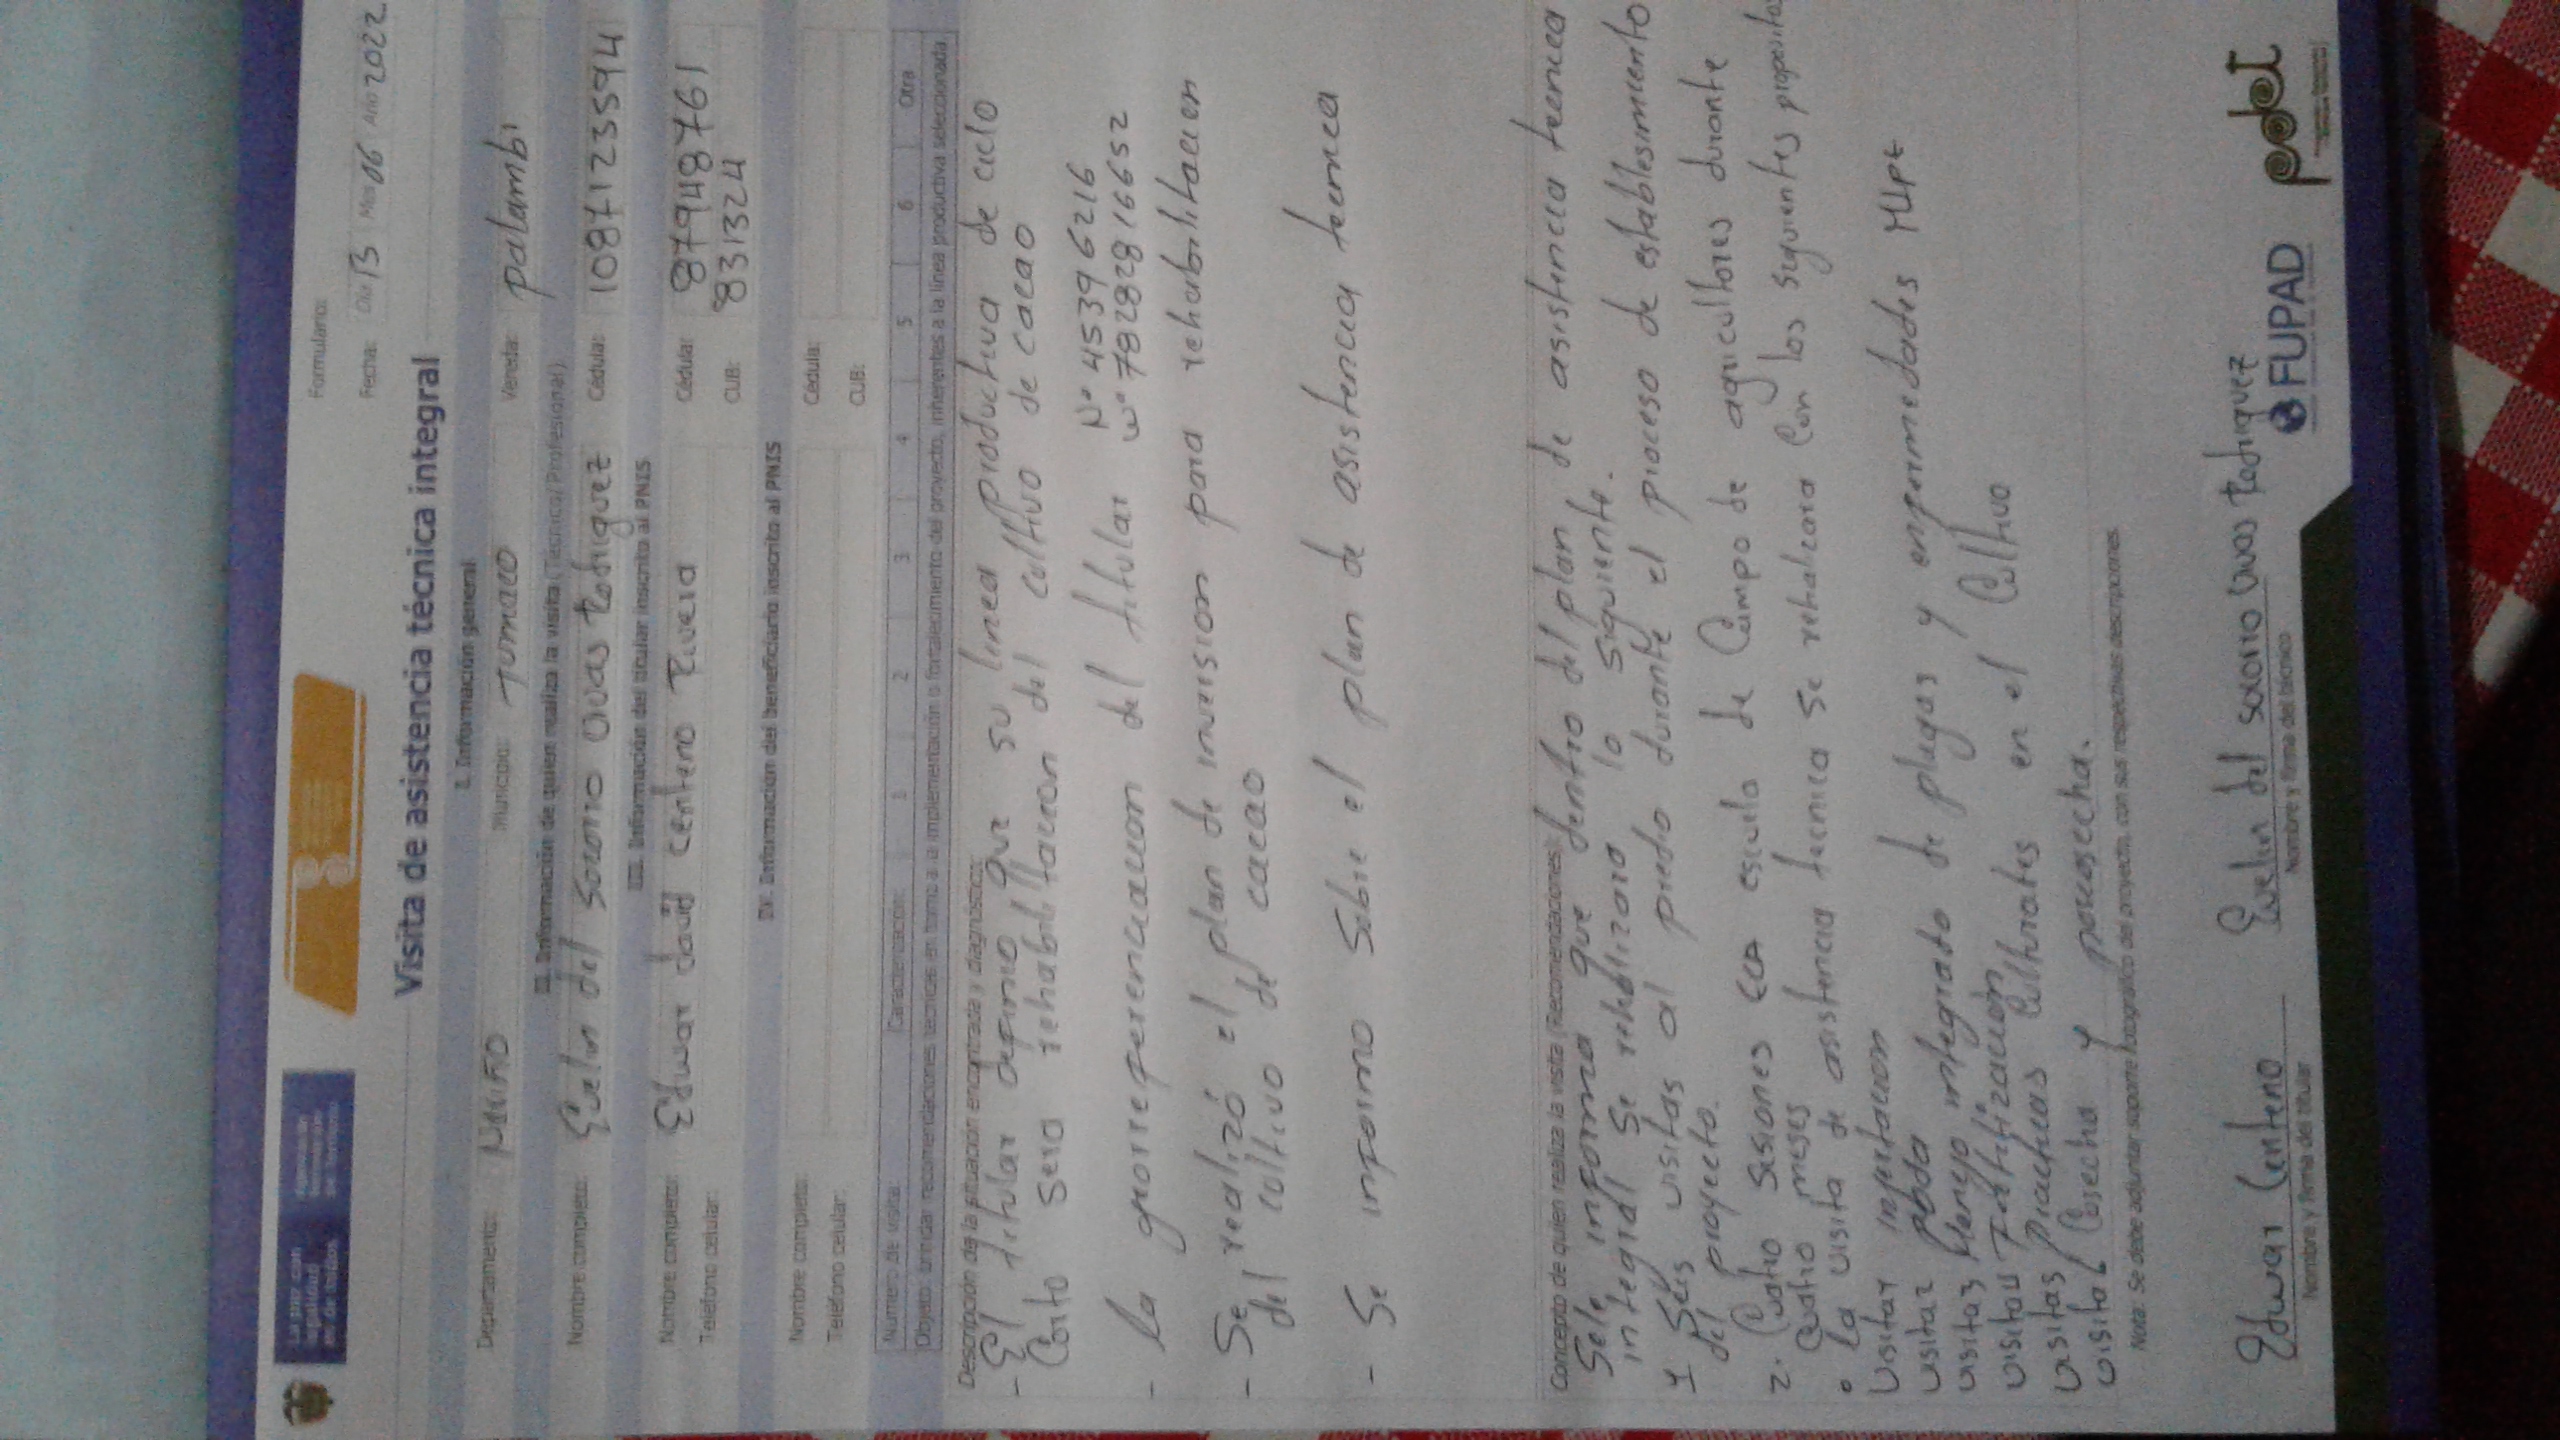 La paz con legalidad es de todos
Formulario:
Fecha: Día 13 Mes 06 Año 2022
Visita de asistencia técnica integral
I. Información general
Departamento: Municipio: Tumaco Vereda: palambi
II. Información de quien realiza la visita (Técnico/Profesional)
Nombre completo: Evelin del socorro Ovas Rodriguez Cédula: 1087123594
III. Información del titular inscrito al PNIS
Nombre completo: Edwar david centeno Rivera Cédula: 87948761
Teléfono celular: CUB: 831324
IV. Información del beneficiario inscrito al PNIS
Nombre completo: Cédula:
Teléfono celular: CUB:
Número de visita: Caracterización: 1 2 3 4 5 6 Otra
Objeto: brindar recomendaciones técnicas en torno a la implementación o fortalecimiento del proyecto, inherentes a la línea productiva seleccionada
Descripción de la situación encontrada y diagnóstico:
- El titular definio que su linea productiva de ciclo
Corto sera rehabilitacion del cultivo de cacao
- la georreferenciacion del titular N° 45396216
W° 7828281 6652
- Se realizó el plan de inversion para rehabilitacion
del cultivo de cacao
- Se informo Sobre el plan de asistencia tecnica
Concepto de quien realiza la visita (Recomendaciones):
Sele informa que dentro del plan de asistencia tecnica
integral Se rehalizara lo siguiente.
1 Seis visitas al predio durante el proceso de establesimiento
del proyecto.
2. Cuatro Sesiones ECA escuela de Campo de agricultores durante
Cuatro meses
• la visita de asistencia tecnica se rehalizara Con los siguientes propositos
Visita1
Visita2 poda
visita3 Manejo integrado de plagas y enfermedades MIpE
visita4 Fertilizacion
visita5 Practicas Culturales en el Cultivo
visita6 Cosecha y poscosecha.
Nota: Se debe adjuntar soporte fotográfico del proyecto, con sus respectivas descripciones.
Edwar Centeno Evelin del socorro Ovas Rodriguez
Nombre y firma del titular Nombre y firma del técnico
FUPAD pdet